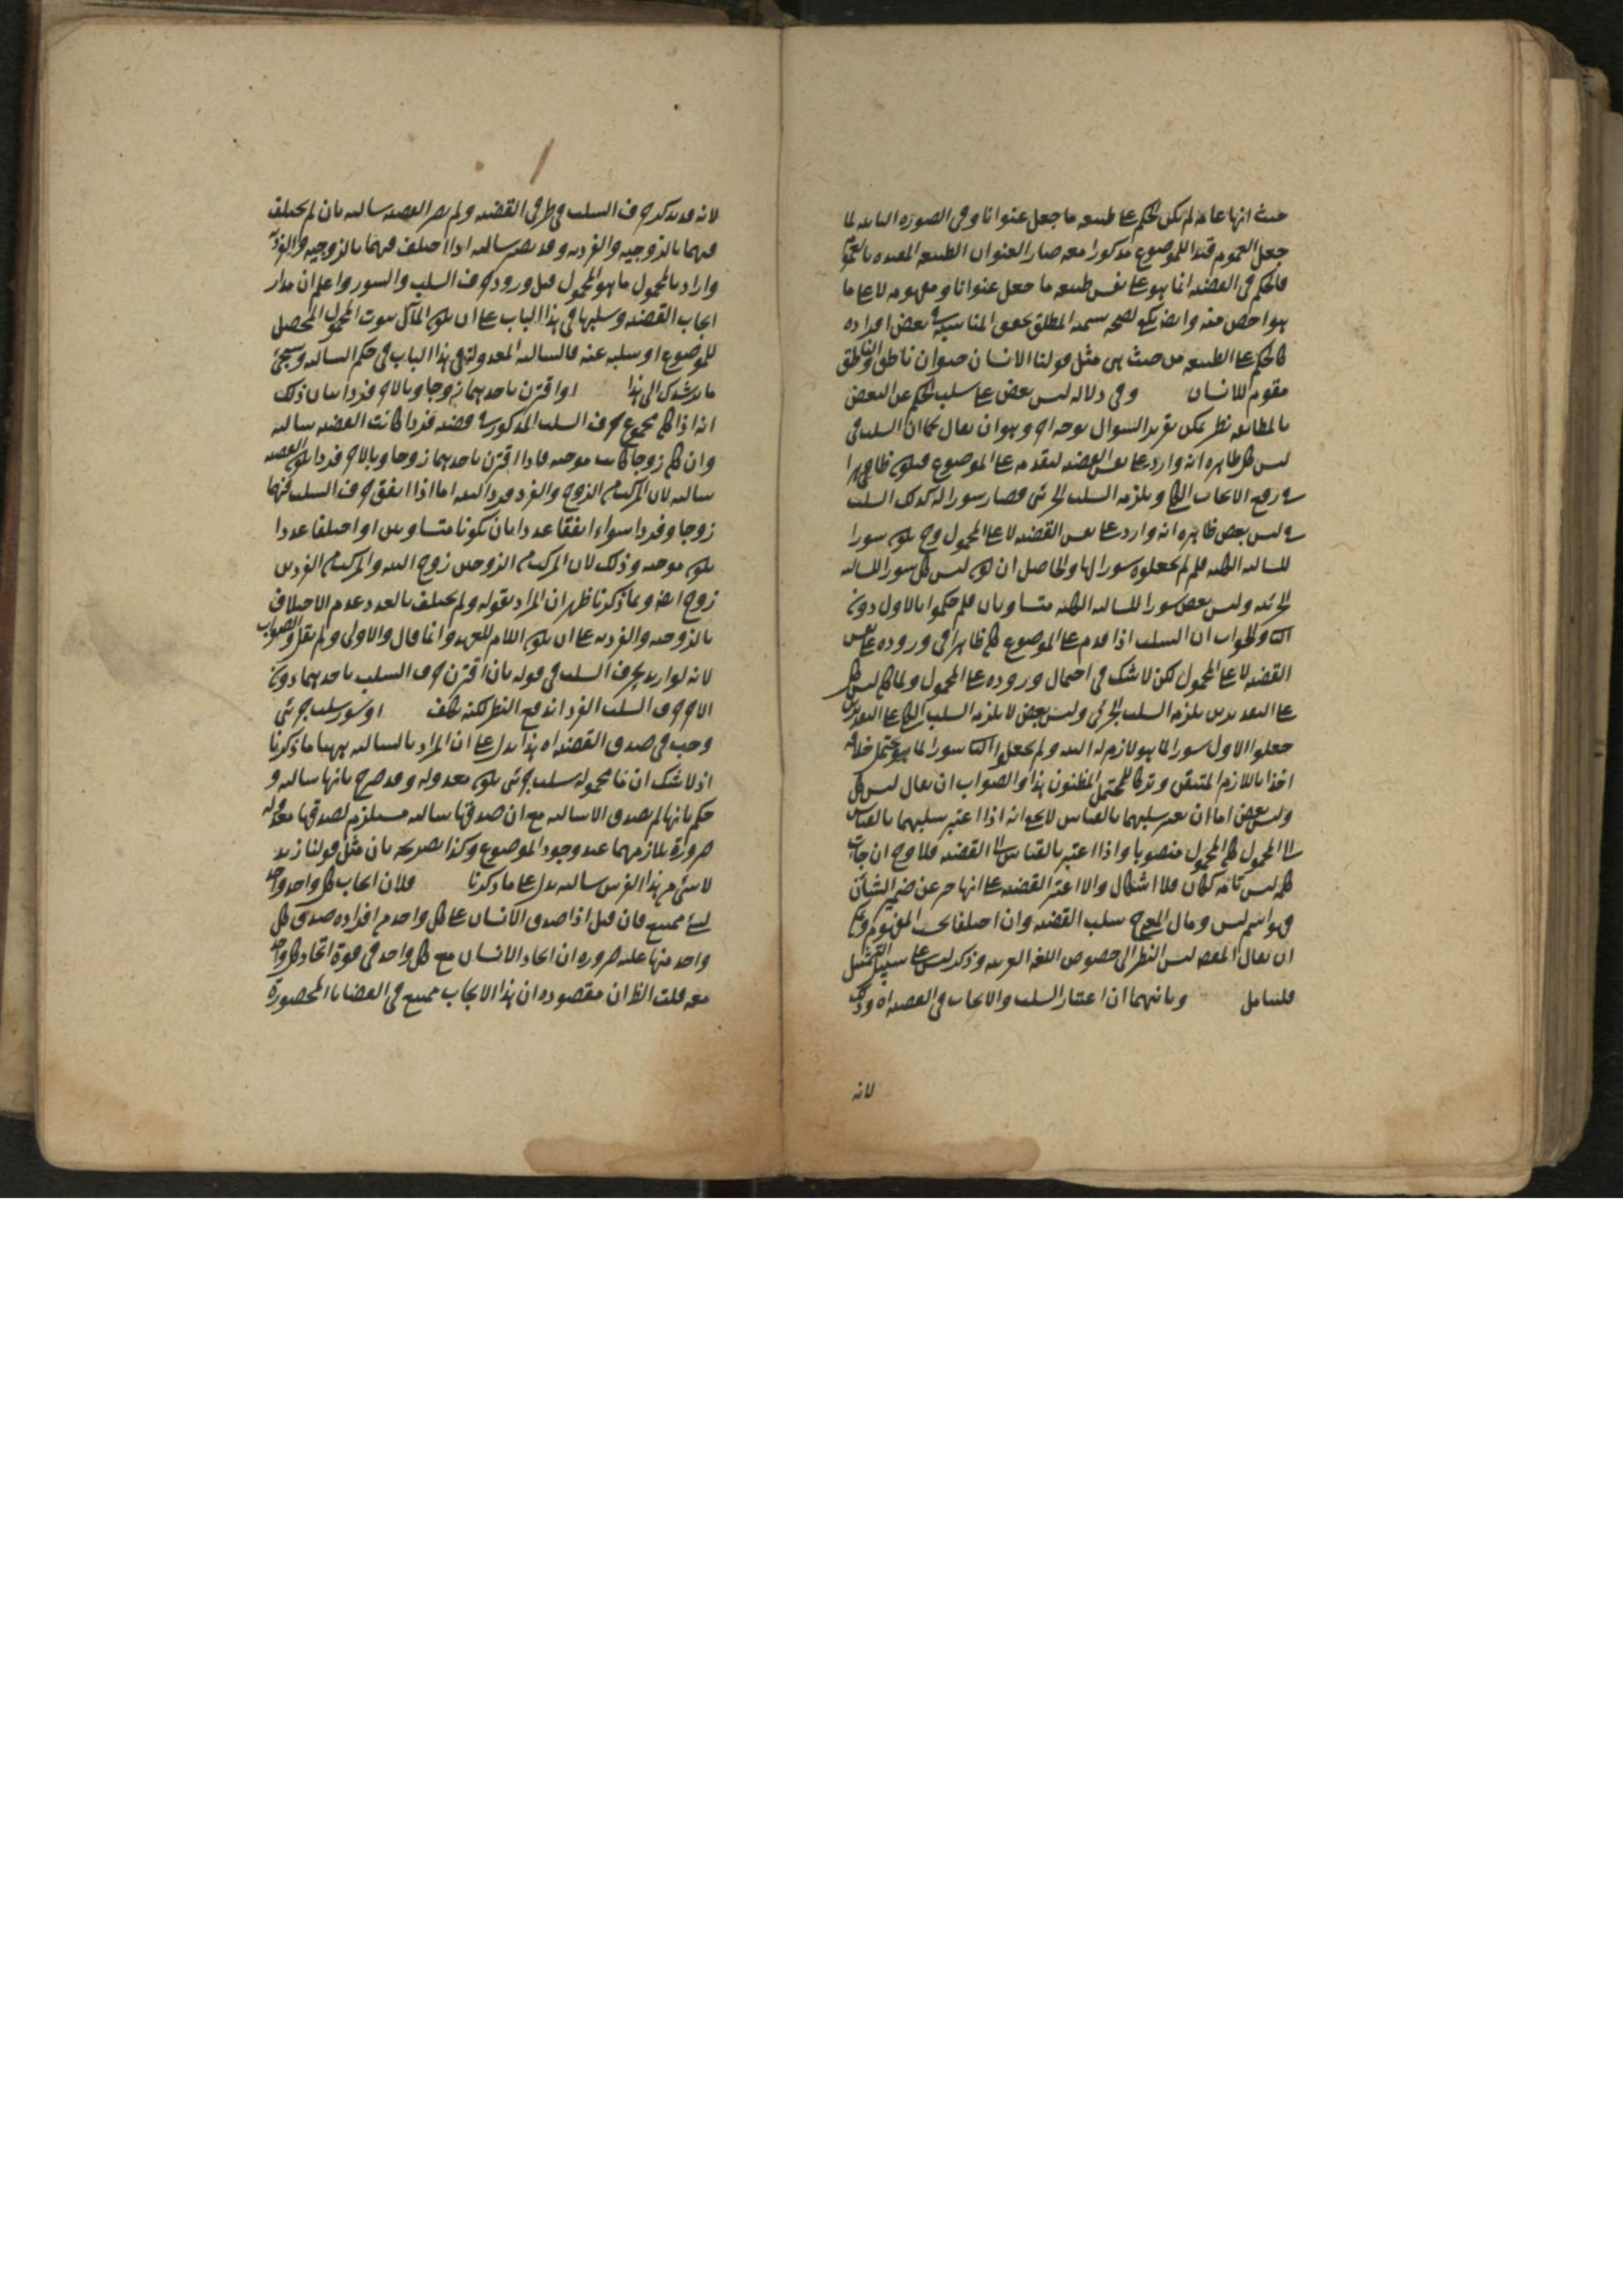 حيث انها عامة لم يكن الحكم على طبيعه ما جعل عنوانا وفى الصورة الثانيه لما
جعل العموم قيدا للموضوع مذكورا معه صار العنوان الطبيعه المقيده بالعموم
فالحكم فى القضيه انما هو على نفس طبيعه ما جعل عنوانا ومفهومه لا على ما
هو اخص منه وايضا يكفى لصحه تسميه المطلق تحقق المناسبه فى بعض افراده
كالحكم على الطبيعه من حيث هى مثل قولنا الانسان حيوان ناطق والناطق
مقوم للانسان وفى دلاله ليس بعض على سلب الحكم عن البعض
بالمطابقه نظر يمكن تقرير السوال بوجه اخر وهو ان يقال كما ان السلب فى
ليس كل ظاهره انه وارد على نفس القضيه لتقدمه على الموضوع فيكون ظاهرا
فى رفع الايجاب الكلى ويلزمه السلب الجزئى فصار سورا له كذلك السلب
فى ليس بعض ظاهره انه وارد على نفس القضيه لا على المحمول وح يكون سورا
للسالبه الكليه فلم لم يجعلوه سورا لها والحاصل ان كون ليس كل سورا للسالبه
الجزئيه وليس بعض سورا للسالبه الكليه متساويان فلم حكموا بالاول دون
الثانى والجواب ان السلب اذا قدم على الموضوع كان ظاهرا فى وروده على نفس
القضيه لا على المحمول لكن لا شك فى احتمال وروده على المحمول ولما كان ليس كل
على التقديرين يلزمه السلب الجزئى وليس بعض لا يلزمه السلب الكلى على التقديرين
جعلوا الاول سورا لما هو لازم له البته ولم يجعلوا الثانى سورا لما هو محتمل خلافه
اخذا باللازم المتيقن وتركا للمحتمل المظنون هذا والصواب ان يقال ليس كل
وليس بعض اما ان يعتبر سلبهما بالقياس لا يجوز انه اذا اعتبر سلبهما بالقياس
الى المحمول كان المحمول منصوبا واذا اعتبر بالقياس الى القضيه فلا وح ان جاز
كلمه ليس تامه كان فلا اشكال والا اعتبر القضيه على انها خبر عن ضمير الشان
فهو اسم ليس ومال الى سلب القضيه وان اختلفا بحسب المفهوم ويمكن
ان يقال ليس النظر الى خصوص اللغه العربيه وذكر ليس على سبيل التمثيل
فليتامل وثانيهما ان اعتبار السلب والايجاب فى القضيه اه وذلك
لانه
لانه قد يذكر حرف السلب فى طرفى القضيه ولم يصر القضيه سالبه بان لم يختلف
فيهما بالزوجيه والفرديه وقد يصير سالبه اذا اختلف فيهما بالزوجيه والفرديه
واراد بالمحمول ما هو المحمول قبل ورود حرف السلب والسور واعلم ان مدار
ايجاب القضيه وسلبها فى هذا الباب على ان يكون المآل ثبوت المحمول المحصل
للموضوع او سلبه عنه فالسالبه المعدوله فى هذا الباب فى حكم السالبه وسيجئ
ما يرشدك الى هذا او اقترن باحدهما زوجا وبالاخر فردا بيان ذلك
انه اذا كان مجموع حرف السلب المذكور فى قضيه فردا كانت القضيه سالبه
وان كان زوجا كانت موجبه فاذا اقترن باحدهما زوجا وبالاخر فردا يكون القضيه
سالبه لان المركب من الزوج والفرد فرد البته اما اذا اتفق حرف السلب فيهما
زوجا وفردا سواء اتفقا عددا بان يكونا متساويين او اختلفا عددا
يكون موجبه وذلك لان المركب من الزوجين زوج البته والمركب من الفردين
زوج ايضا وبما ذكرنا ظهر ان المراد بقوله ولم يختلف بالعدد عدم الاختلاف
بالزوجيه والفرديه على ان يكون اللام للعهد وانما قال والاولى ولم يقل والصواب
لانه لو اريد بحرف السلب فى قوله بان اقترن حرف السلب باحدهما دون
الاخر حرف السلب الفرد اندفع النظر لكنه تكلف او سور سلب جزئى
وجب فى صدق القضيه اه هذا يدل على ان المراد بالسالبه ههنا ما ذكرنا
اذ لا شك ان ما محموله سلب جزئى يكون معدوله وقد صرح بانها سالبه و
حكم بانها لم يصدق الا سالبه مع ان صدقها سالبه مستلزم لصدقها معدوله
ضرورة تلازمهما عند وجود الموضوع وكذا تصريحه بان مثل قولنا زيد
لا شئ من هذا الفرس سالبه يدل على ما ذكرنا فلان ايجاب كل واحد واحد
لشئ ممتنع فان قيل اذا صدق الانسان على كل واحد من افراده صدق كل
واحد منها عليه ضروره ان اتحاد الانسان مع كل واحد فى قوة اتحاد كل واحد
معه قلت الظ ان مقصوده ان هذا الايجاب ممتنع فى القضايا المحصورة